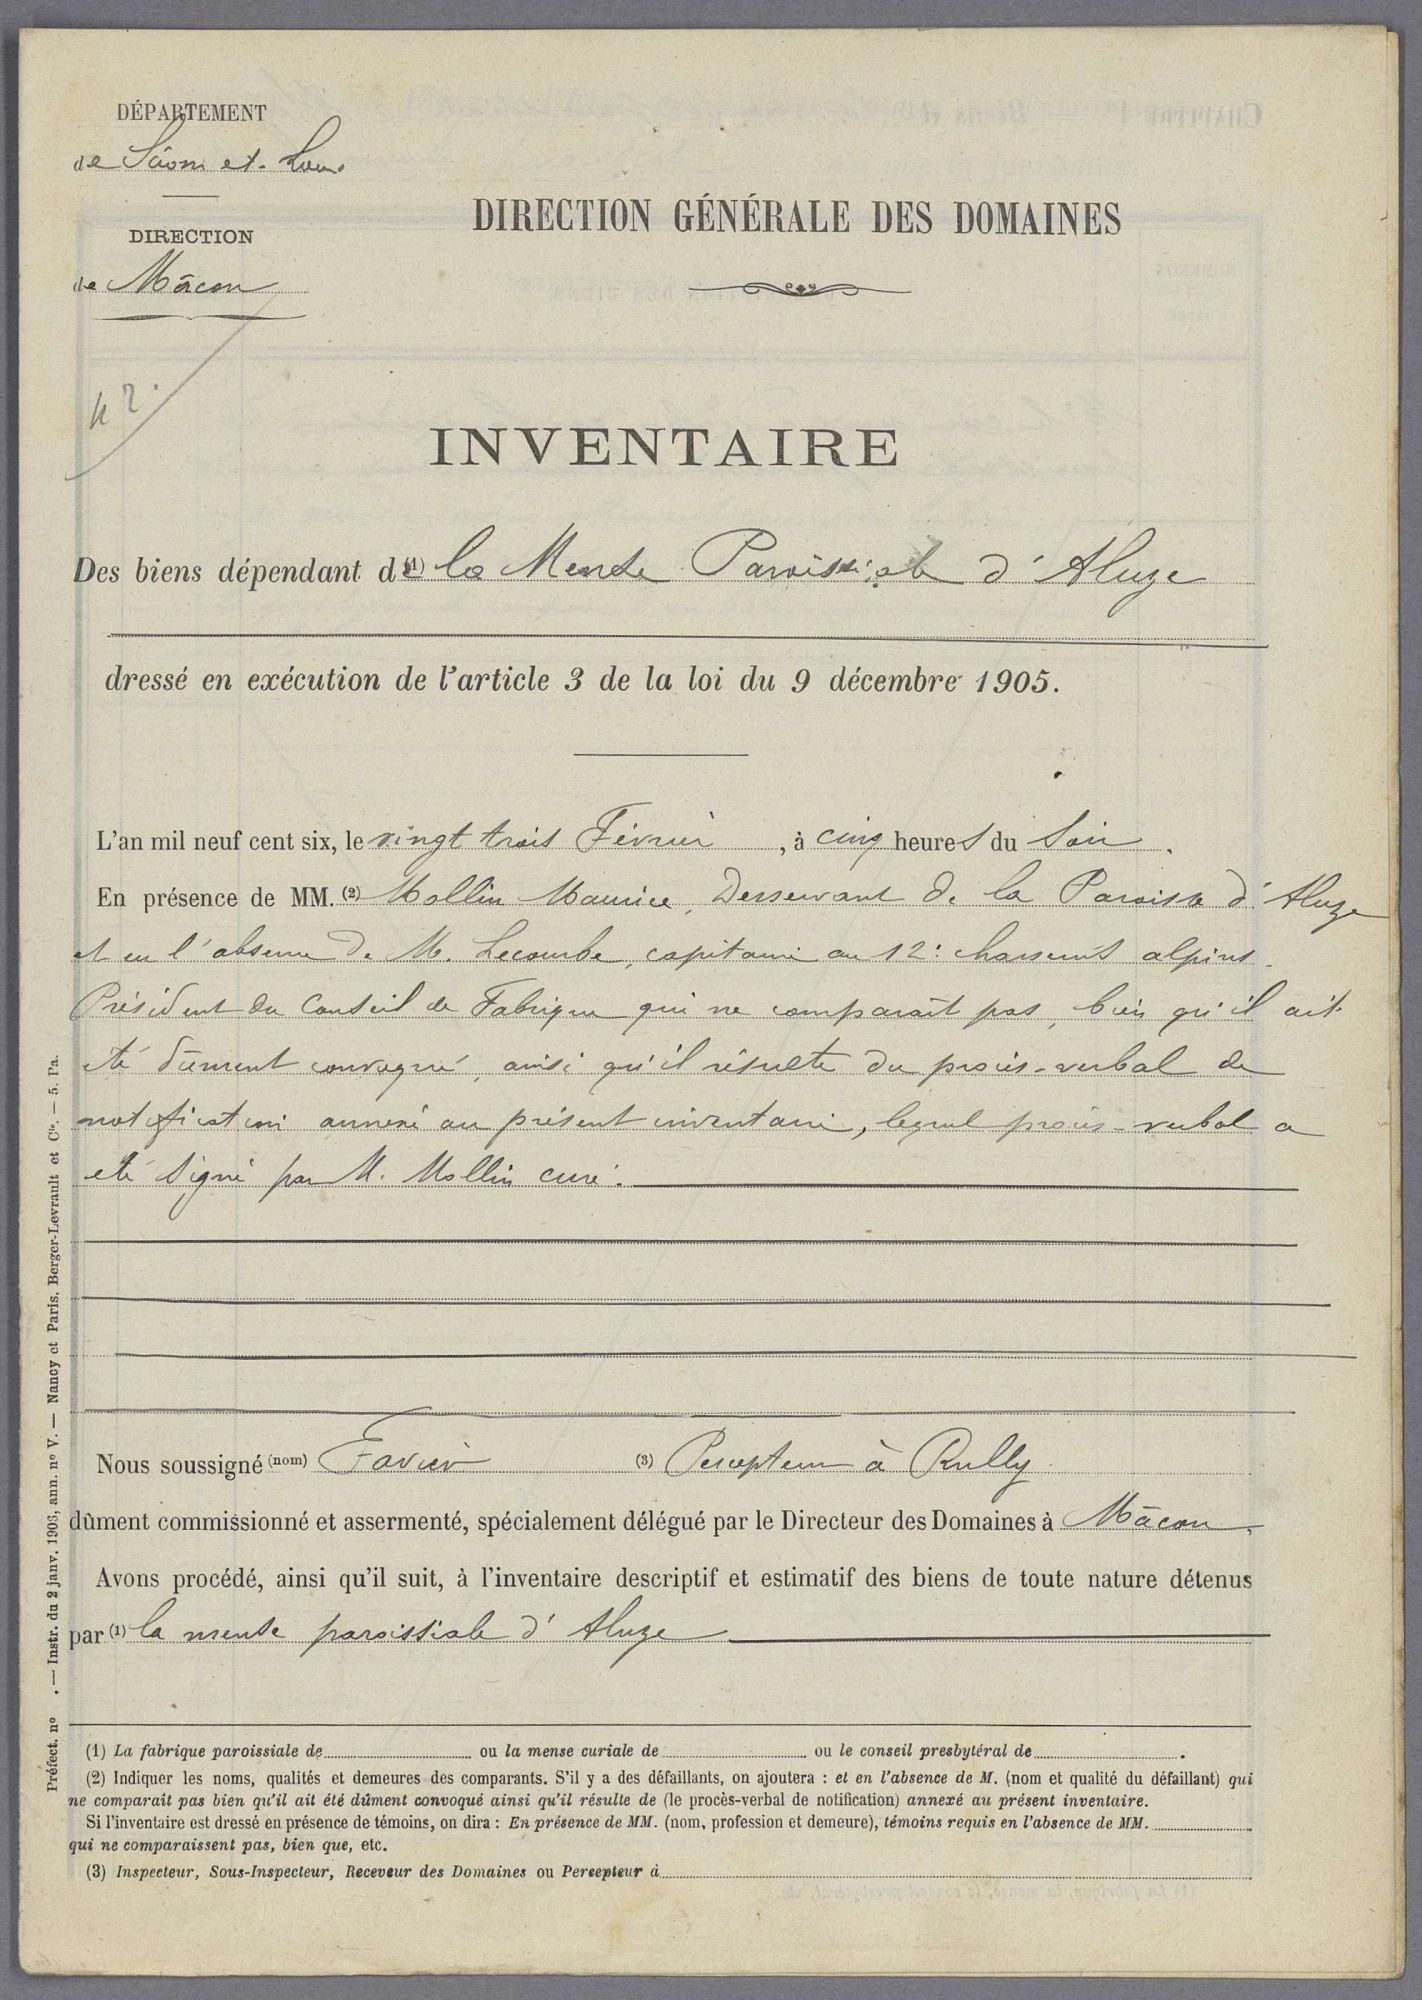 DÉPARTEMENT
de Saône et-Loire
DIRECTION
de Mâcon
DIRECTION GÉNÉRALE DES DOMAINES
42.
INVENTAIRE
Des biens dépendant de (1) la Mense Paroissiale d'Aluze
dressé en exécution de l'article 3 de la loi du 9 décembre 1905.
L'an mil neuf cent six, le vingt trois Février, à cinq heures du Soir.
En présence de MM. (2) Mollin Maurice, Desservant de la Paroisse d'Aluze
et en l'absence de M. Lecombe, capitaine au 12e chasseurs alpins
Président du Conseil de Fabrique qui ne comparaît pas, bien qu'il ait
été dûment convoqué, ainsi qu'il résulte du procès-verbal de
notification annexé au présent inventaire, lequel procès-verbal a
été signé par M. Mollin curé.
Nous soussigné (nom) Favier (3) Percepteur à Rully
dûment commissionné et assermenté, spécialement délégué par le Directeur des Domaines à Mâcon,
Avons procédé, ainsi qu'il suit, à l'inventaire descriptif et estimatif des biens de toute nature détenus
par (1) la mense paroissiale d'Aluze
(1) La fabrique paroissiale de ou la mense curiale de ou le conseil presbytéral de .
(2) Indiquer les noms, qualités et demeures des comparants. S'il y a des défaillants, on ajoutera : et en l'absence de M. (nom et qualité du défaillant) qui
ne comparaît pas bien qu'il ait été dûment convoqué ainsi qu'il résulte de (le procès-verbal de notification) annexé au présent inventaire.
Si l'inventaire est dressé en présence de témoins, on dira : En présence de MM. (nom, profession et demeure), témoins requis en l'absence de MM.
qui ne comparaissent pas, bien que, etc.
(3) Inspecteur, Sous-Inspecteur, Receveur des Domaines ou Percepteur à
Préfect. no . — Instr. du 2 janv. 1906, ann. no V. — Nancy et Paris, Berger-Levrault et Cie. — 5. Pa.